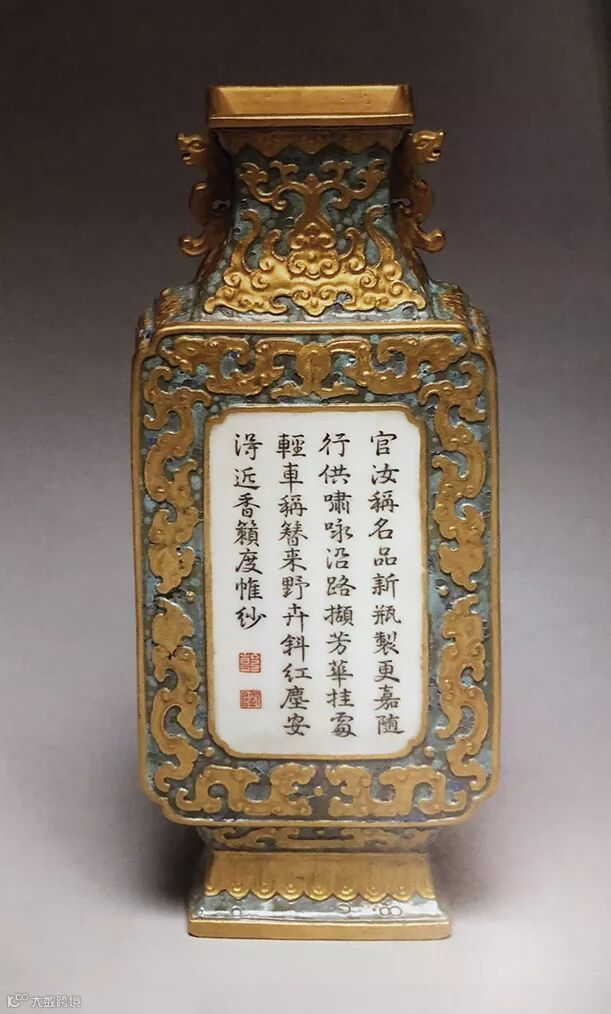 官汝稱名品新瓶製更嘉隨
行供嘯咏沿路擷芳華挂處
輕車稱簪来野卉斜紅塵安
得近香籟度帷紗
大数跨境